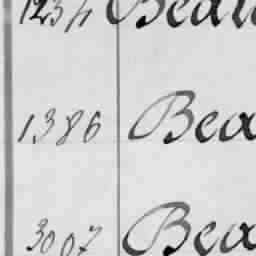 1234 Beau
1386 Bea
3007 Bea